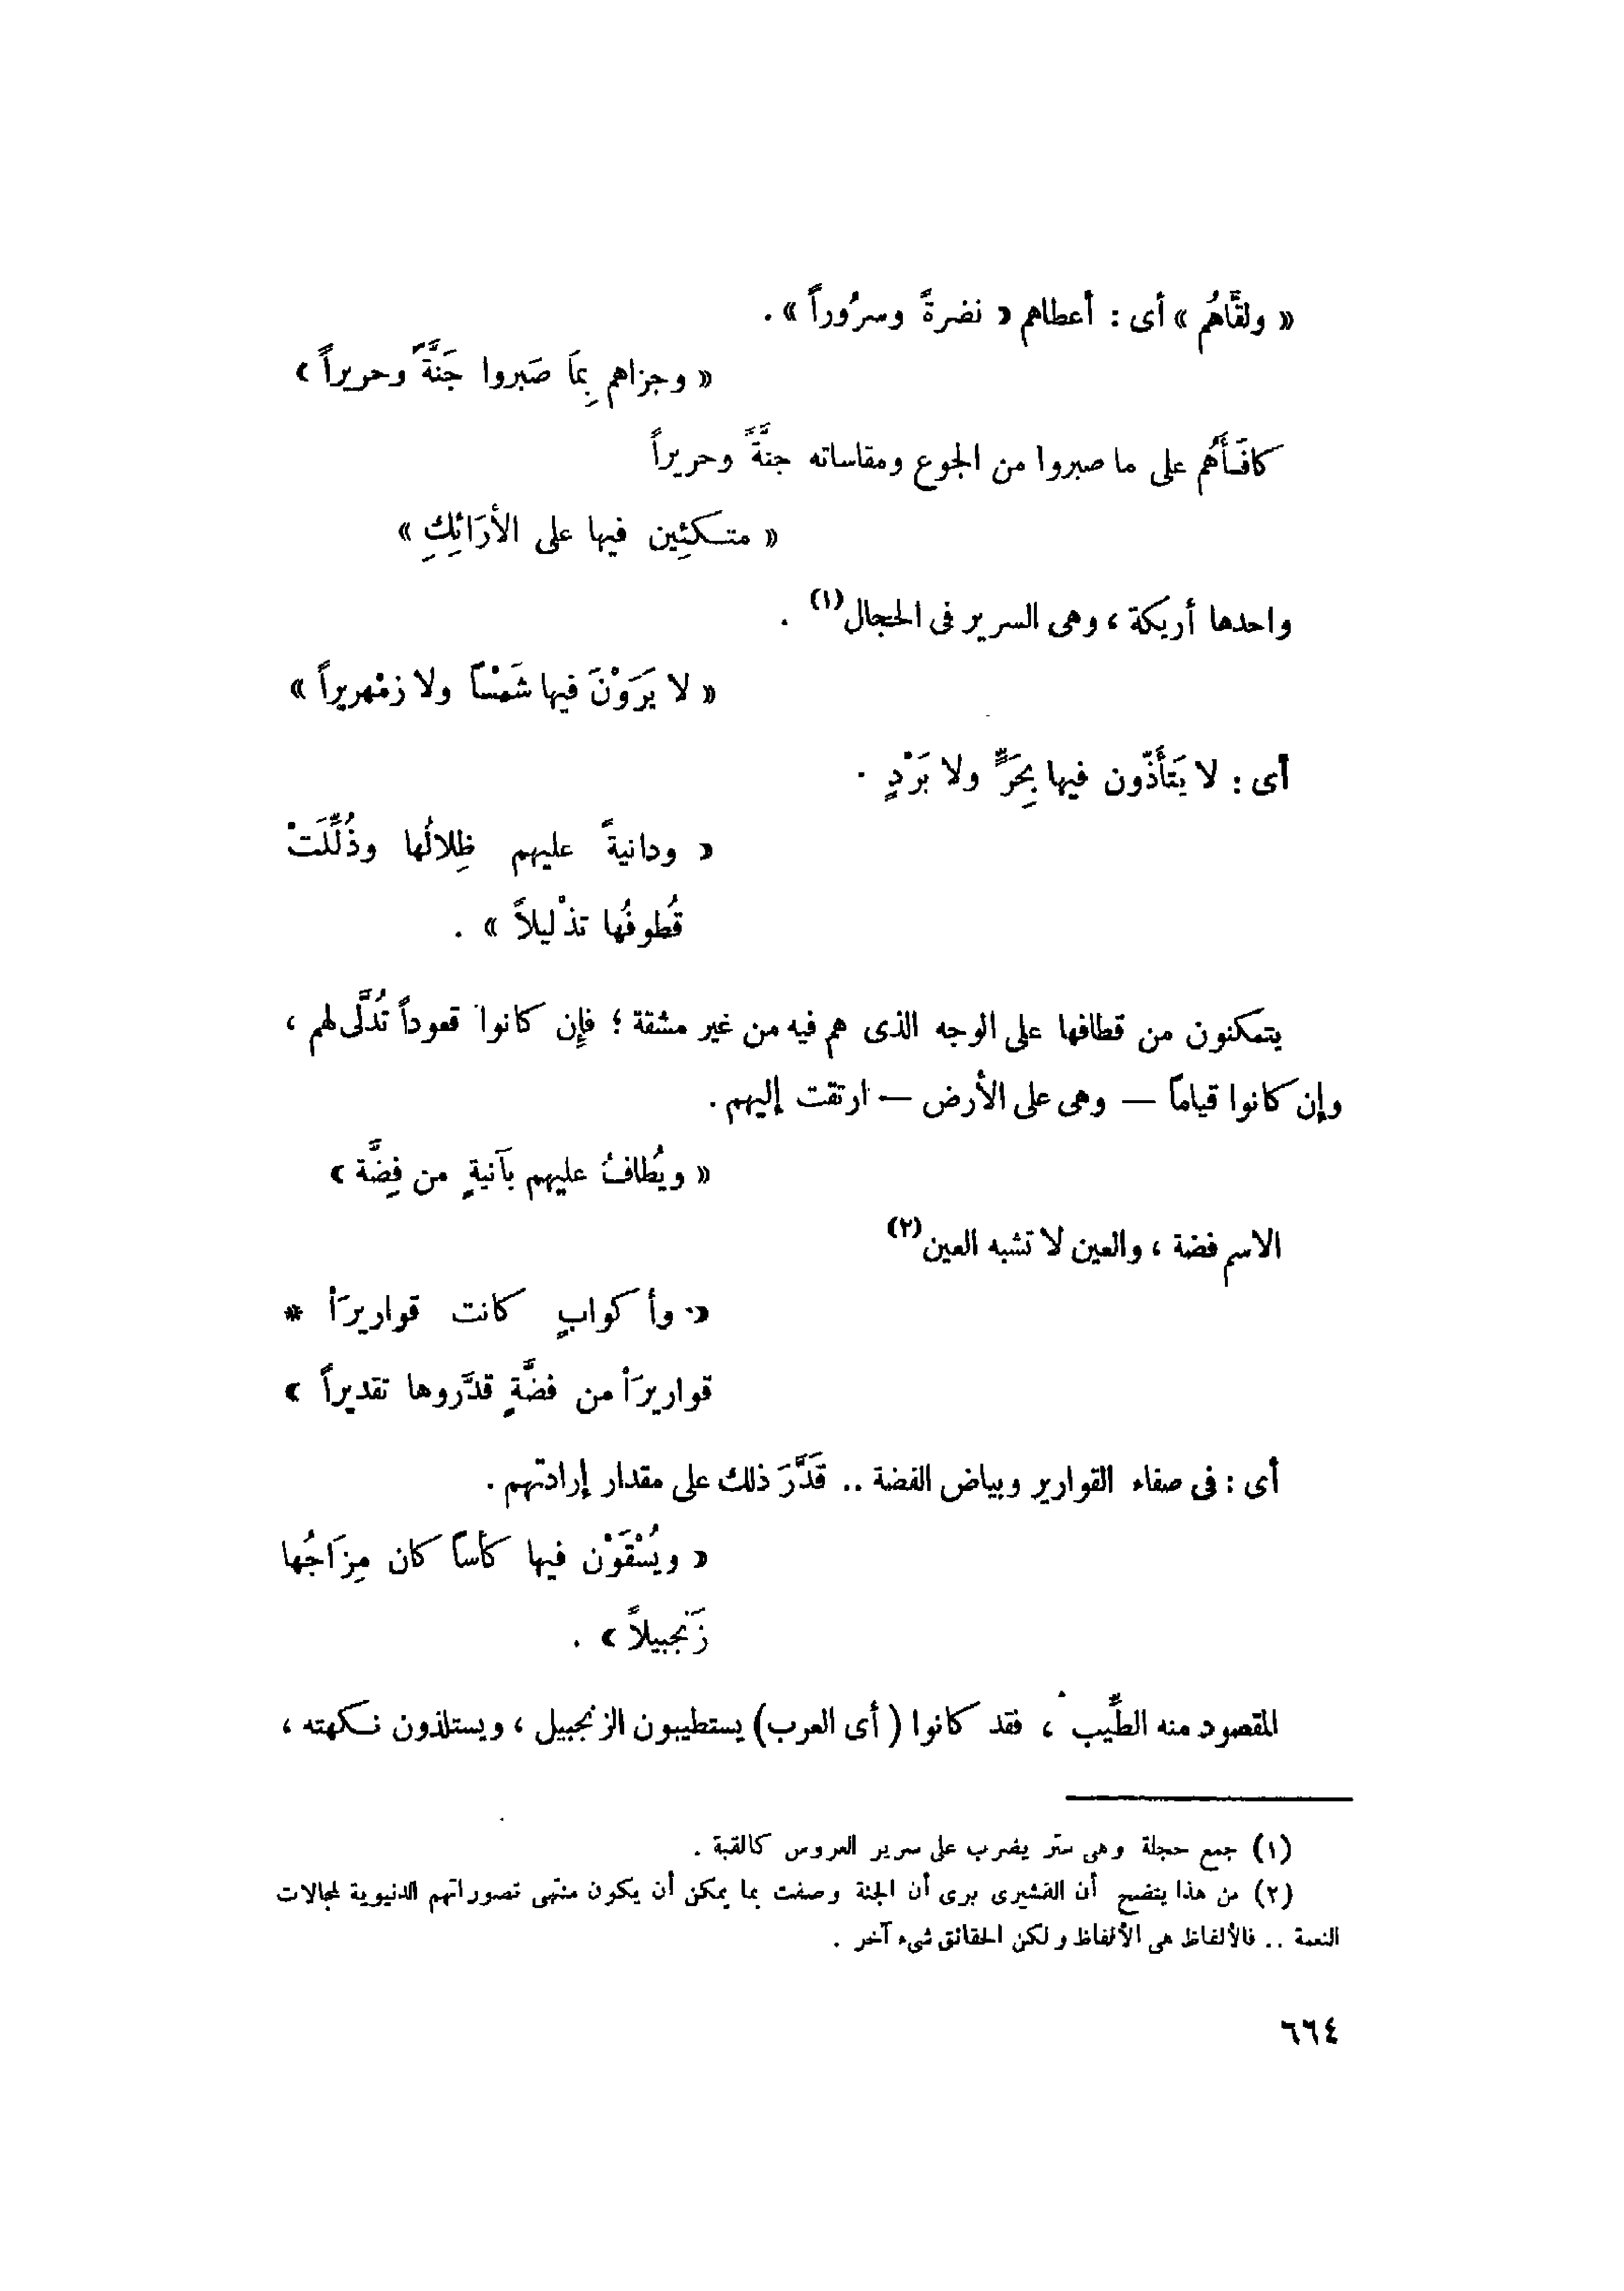 « ولقَّاهُم » أى : أعطاهم « نضرةً وسرُوراً » .
« وجزاهم بِمَا صَبروا جَنَّةً وحريراً »
كافَأَهُم على ما صبروا من الجوع ومقاساته جنَّةً وحريراً
« متكئِين فيها على الأرَائِكِ »
واحدها أريكة ، وهى السرير فى الحجال (١) .
« لا يَرَوْنَ فيها شَمْساً ولا زمْهريراً »
أى : لا يَتَأَذَّون فيها بِحَرٍّ ولا بَرْدٍ .
« ودانيةً عليهم ظِلالُها وذُلِّلَتْ
قُطوفُها تذْليلاً » .
يتمكنون من قطافها على الوجه الذى هم فيه من غير مشقة ؛ فإن كانوا قعوداً تُدَلَّى لهم ،
وإن كانوا قياماً — وهى على الأرض — ارتقت إليهم .
« ويُطافُ عليهم بآنيةٍ من فِضَّة »
الاسم فضة ، والعين لا تشبه العين (٢)
« وأكوابٍ كانت قواريرَاْ *
قواريرَاْ من فضَّةٍ قدَّروها تقديراً »
أى : فى صفاء القوارير وبياض الفضة .. قَدَّرَ ذلك على مقدار إرادتهم .
« ويُسْقَوْن فيها كأساً كان مِزَاجُها
زَنجبيلاً » .
المقصود منه الطِّيب ، فقد كانوا ( أى العرب ) يستطيبون الزنجبيل ، ويستلذون نكهته ،
(١) جمع حجلة وهى ستر يضرب على سرير العروس كالقبة .
(٢) من هذا يتضح أن القشيرى يرى أن الجنة وصفت بما يمكن أن يكون منتهى تصوراتهم الدنيوية لمجالات
النعمة .. فالألفاظ هى الألفاظ ولكن الحقائق شىء آخر .
٦٦٤